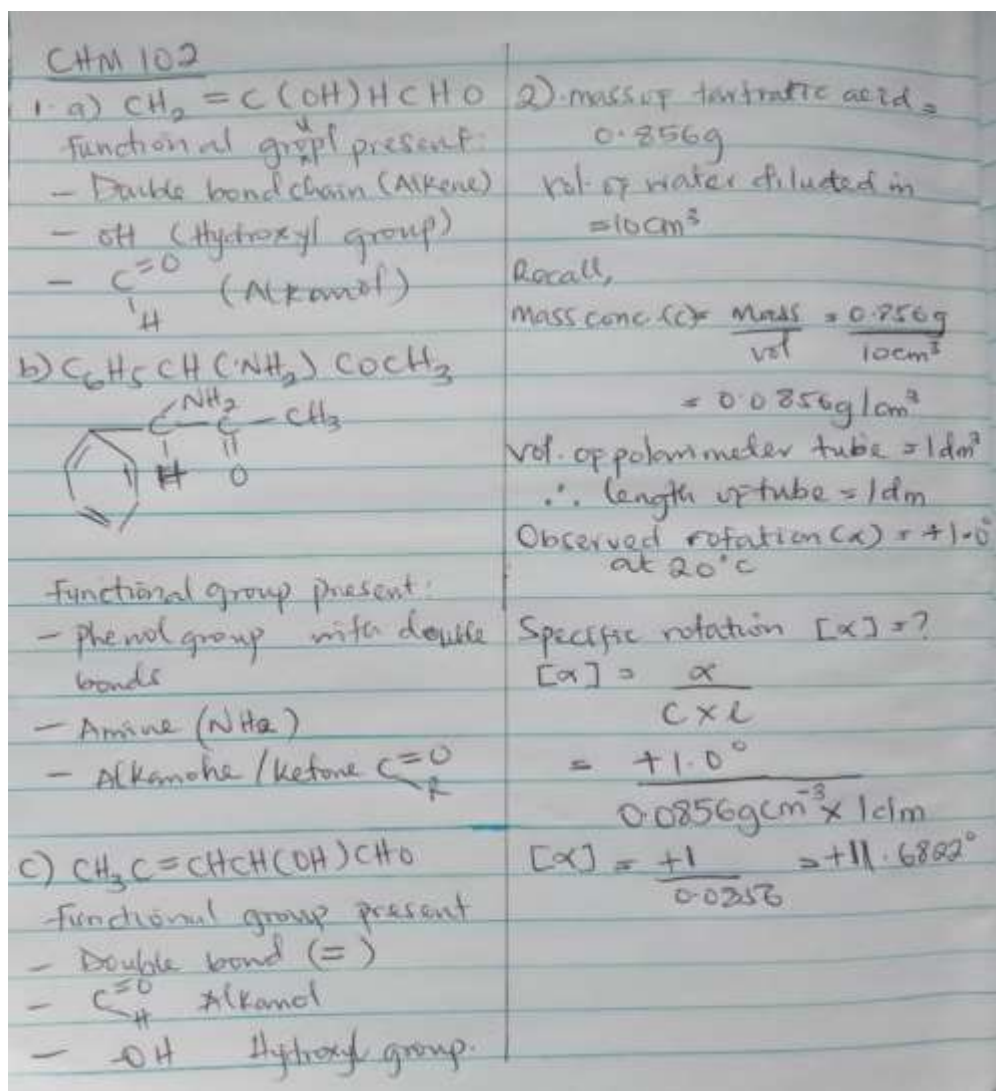 CHM 102
1. a) CH₂ = C(OH)HCHO
functional present:
- Double bond chain (Alkene)
- OH (Hydroxyl group)
- C=O (Alkanol)
H
b) C₆H₅CH(NH₂)COCH₃
NH₂
C - C - CH₃
H O
Functional group present:
- phenol group with double
bonds
- Amine (NH₂)
- Alkanone / Ketone C=O
R
c) CH₃C=CHCH(OH)CHO
Functional group present
- Double bond (=)
- C=O Alkanol
H
- -OH Hydroxyl group.
2). mass of acid =
0.856g
vol. of water diluted in
=10cm³
Recall,
Mass conc. (c) = Mass = 0.856g
vol 10cm³
= 0.0856g/cm³
vol. of tube = 1dm³
∴ length of tube = 1dm
Observed rotation (α) = +1.0°
at 20°C
Specific rotation [α] = ?
[α] = α
C x l
= +1.0°
0.0856gcm⁻³ x 1dm
[α] = +1 = +11.6822°
0.0856